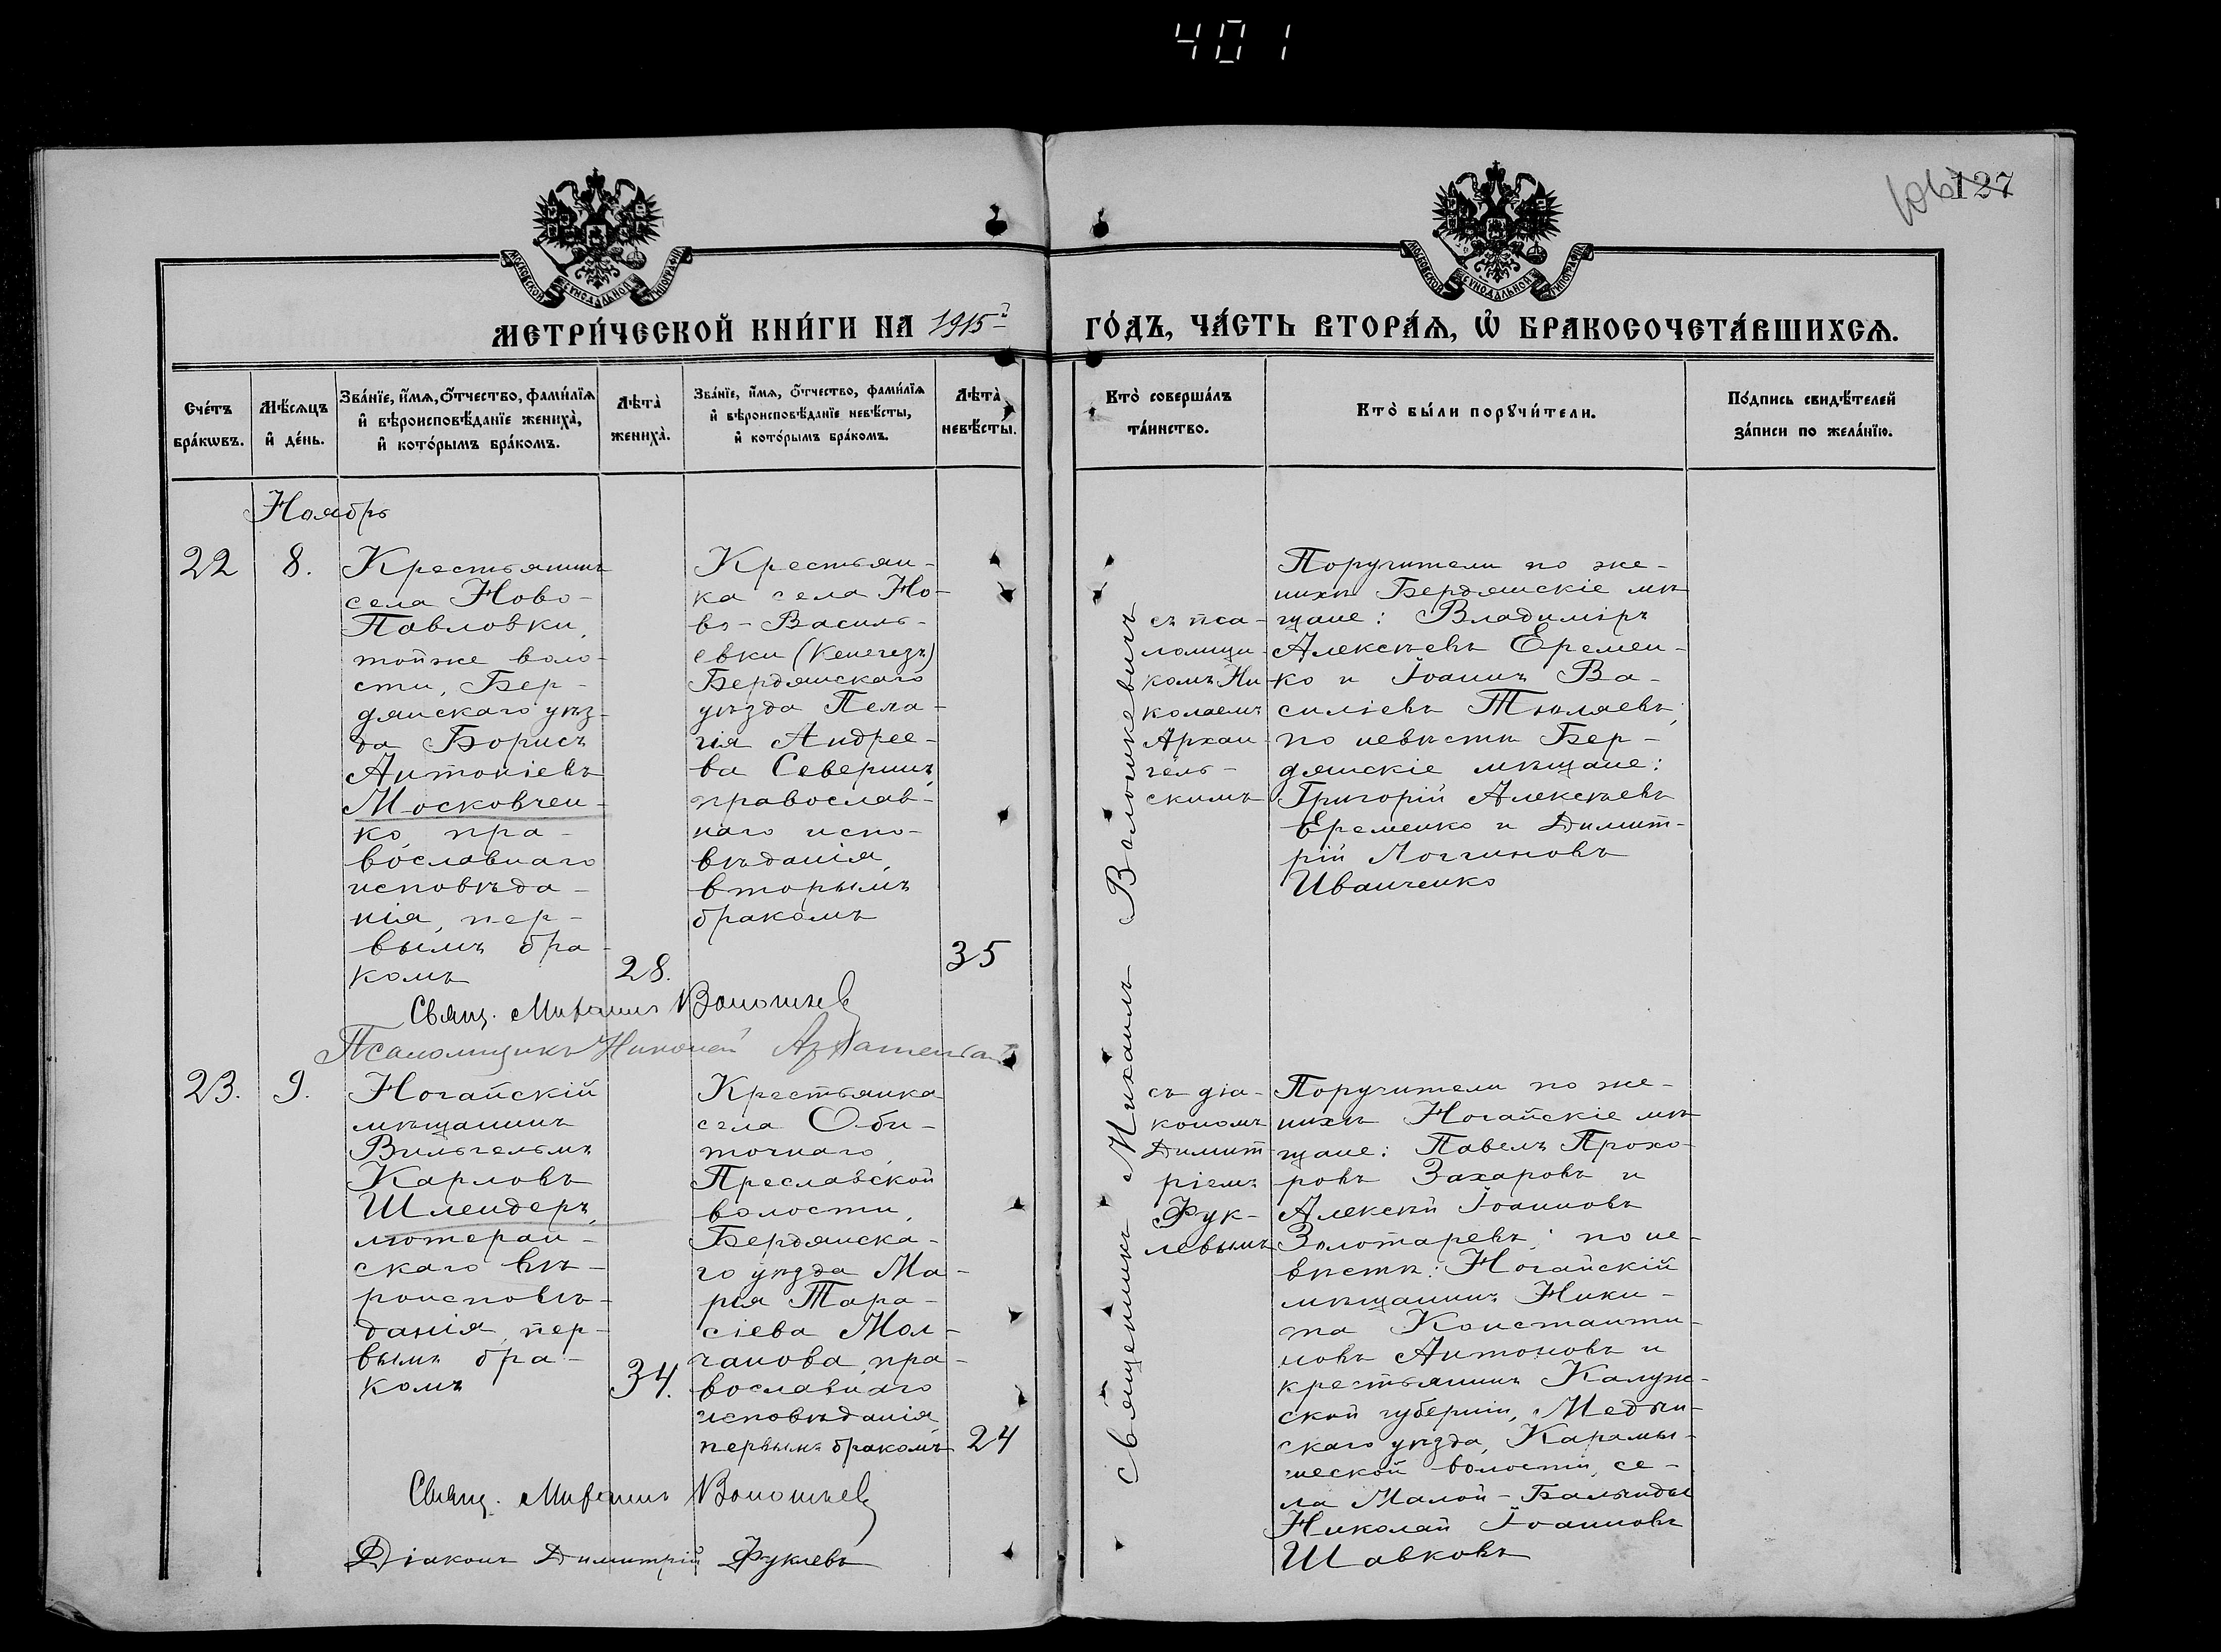 401
127
МОСКОВСКОЙ СѴНОДАЛЬНОЙ ТИПОГРАФІИ
МОСКОВСКОЙ СѴНОДАЛЬНОЙ ТИПОГРАФІИ
МЕТРИ́ЧЕСКОЙ КНИ́ГИ НА 1915й
ГО́ДЪ, ЧА́СТЬ ВТОРА́Ѧ, Ѽ БРАКОСОЧЕТА́ВШИХСѦ.
Сче́тъ
бра́кѡвъ.
Мѣ́сѧцъ
и҆ де́нь.
Зва́нїе, и҆́мѧ, ѻ҆́тчество, фами́лїѧ
и҆ вѣроисповѣ́данїе жениха̀,
и҆ кото́рымъ бра́комъ.
Лѣта̀
жениха̀.
Зва́нїе, и҆́мѧ, ѻ҆́тчество, фами́лїѧ
и҆ вѣроисповѣ́данїе невѣ́сты,
и҆ кото́рымъ бра́комъ.
Лѣта̀
невѣ́сты.
Кто̀ соверша́лъ
та́инство.
Кто̀ бы́ли порꙋчи́тели.
По́дпись свидѣ́телей
за́писи по жела́нїю.
Ноябрь
22
8.
Крестьянинъ
села Ново-
Павловки,
тойже воло-
сти, Бер-
дянскаго уѣз-
да Борисъ
Антоніевъ
Московчен-
ко, пра-
вославнаго
исповѣда-
нія, пер-
вымъ бра-
комъ
28.
Крестьян-
ка села Но-
во-Василь-
евки (Кенегезъ)
Бердянскаго
уѣзда Пела-
гія Андрее-
ва Северинъ,
православ-
наго испо-
вѣданія,
вторымъ
бракомъ
35
Священникъ Михаилъ Волошкевичъ
съ пса-
ломщи-
комъ Ни-
колаемъ
Архан-
гель-
скимъ
Поручители по же-
нихѣ Бердянскіе мѣ-
щане: Владиміръ
Алексѣевъ Еремен-
ко и Іоаннъ Ва-
силіевъ Тюляевъ;
по невѣстѣ Бер-
дянскіе мѣщане:
Григорій Алексѣевъ
Еременко и Димит-
рій Логгиновъ
Иванченко
Свящ. Михаилъ Волошкев
Псаломщикъ Николай
23.
9.
Ногайскій
мѣщанинъ
Вильгельмъ
Карловъ
Шлендеръ,
лютеран-
скаго вѣ-
роисповѣ-
данія, пер-
вымъ бра-
комъ
34.
Крестьянка
села Оби-
точнаго,
Преславской
волости,
Бердянска-
го уѣзда Ма-
рія Тара-
сіева Мол-
чанова, пра-
вославнаго
исповѣданія
первымъ бракомъ
24
съ діа-
кономъ
Димит-
ріемъ
Фук-
левымъ
Поручители по же-
нихѣ Ногайскіе мѣ-
щане: Павелъ Прохо-
ровъ Захаровъ и
Алексѣй Іоанновъ
Золотаревъ; по не-
вѣстѣ: Ногайскій
мѣщанинъ Ники-
та Константи-
новъ Антоновъ и
крестьянинъ Калуж-
ской губерніи, Медын-
скаго уѣзда, Карамы-
шеской волости, се-
ла Малой-
Николай Іоанновъ
Шавковъ
Свящ. Михаилъ Волошкев
Діаконъ Димитрій Фуклевъ